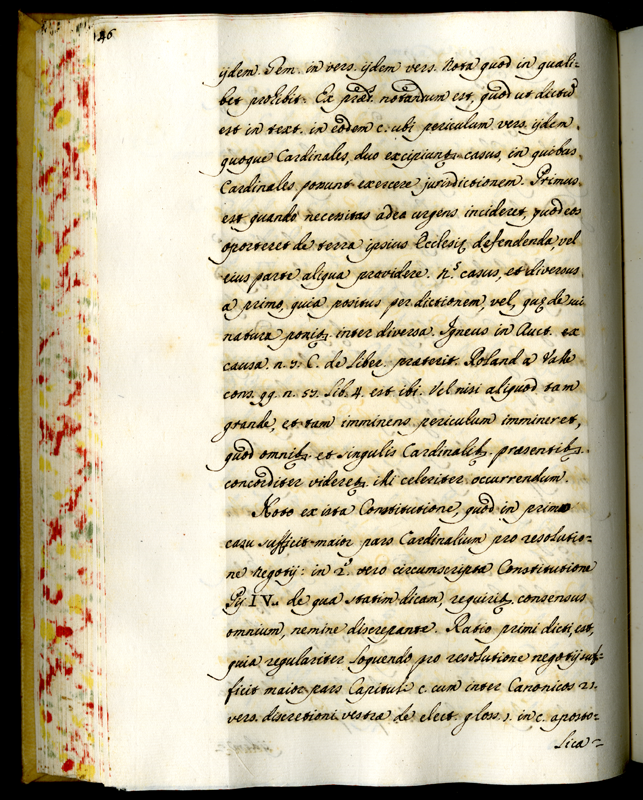 26
ijdem. Tem. in vers. ijdem vers. Nota quod in quali-
bet prohibit: Ex præt. notandum est, quod ut dictū
est in text. in eodem c. ubi periculum vers. ijdem
quoque Cardinales, duo excipiunt casus, in quibus
Cardinales possunt exercere jurisdictionem. Primus
est quando necessitas adeo urgens incideret, quod eos
oporteret de terra ipsius Ecclesię defendenda vel
eius parte aliqua providere. casus, et diversus
a primo, quia positus per dictionem, vel, quę de sui
natura ponitꝫ inter diversa. Igneus in Auct. ex
causa n. 3. C. de liber. præterit. Roland a Valle
cons. 99. n. 53. lib. 4. est ibi. Vel nisi aliquod tam
grande, et tam imminens periculum immineret,
quod omnibꝫ et singulis Cardinalibꝫ præsentibꝫ
concorditer videretꝫ illi celeriter occurrendum.
Noto ex ista Constitutione, quod in primo
casu sufficit maior pars Cardinalium pro resolutio-
ne negotij: in 2.º vero circumscripta Constitutione
Pij IV. de qua statim dicam, requiritꝫ consensus
omnium, nemine discrepante. Ratio primi dicti, est,
quia regulariter loquendo pro resolutione negotij suf-
ficit maior pars Capituli c. cum inter Canonicos 21.
vers. discretioni vestræ de elect. gloss. 1. in c. aposto-
lica-